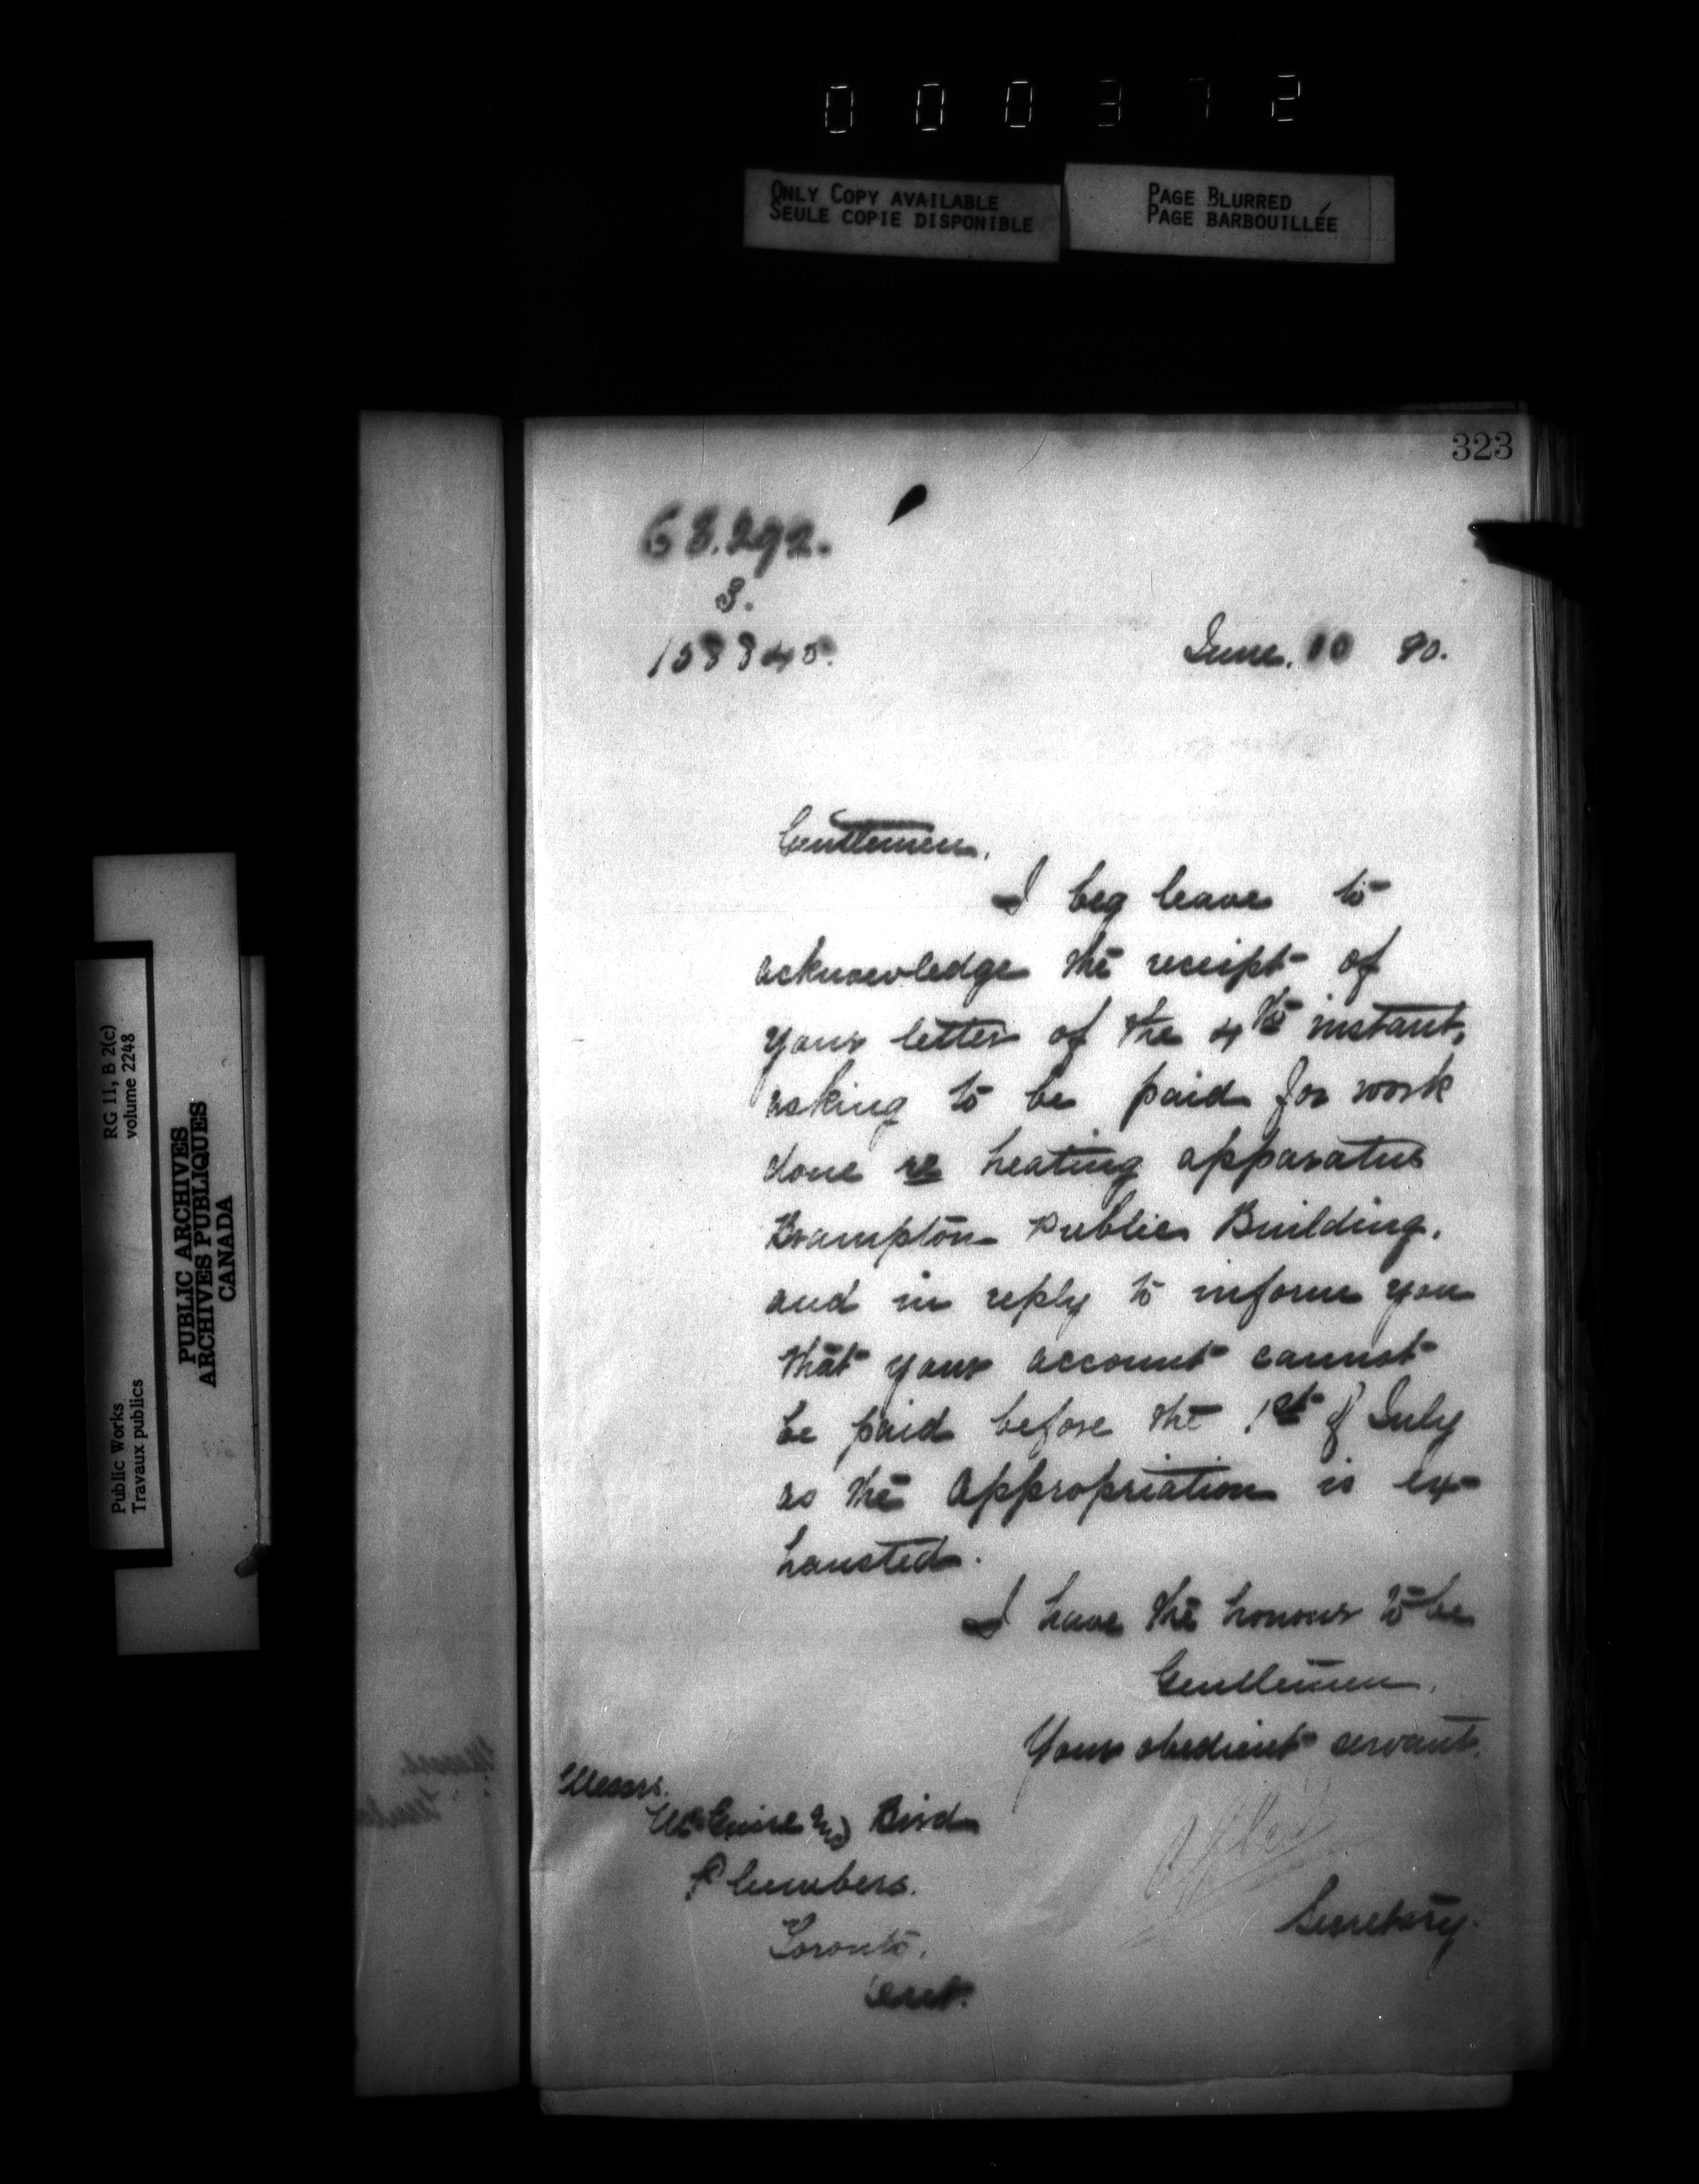 000372
ONLY COPY AVAILABLE
SEULE COPIE DISPONIBLE
PAGE BLURRED
PAGE BARBOUILLÉE
323
June. 10 90.
Gentlemen.
I beg leave to
acknowledge the receipt of
your letter of the 4th instant,
asking to be paid for work
done re heating apparatus
Brampton Public Building,
and in reply to inform you
that your account cannot
be paid before the 1st of July
as the Appropriation is ex-
hausted.
I have the honour to be
Gentlemen.
Your obedient servant.
Secretary.
Messrs.
McGuire & Bird
Plumbers.
Toronto.
Ont.
Public Works
Travaux publics
RG 11, B 2(c)
volume 2248
PUBLIC ARCHIVES
ARCHIVES PUBLIQUES
CANADA